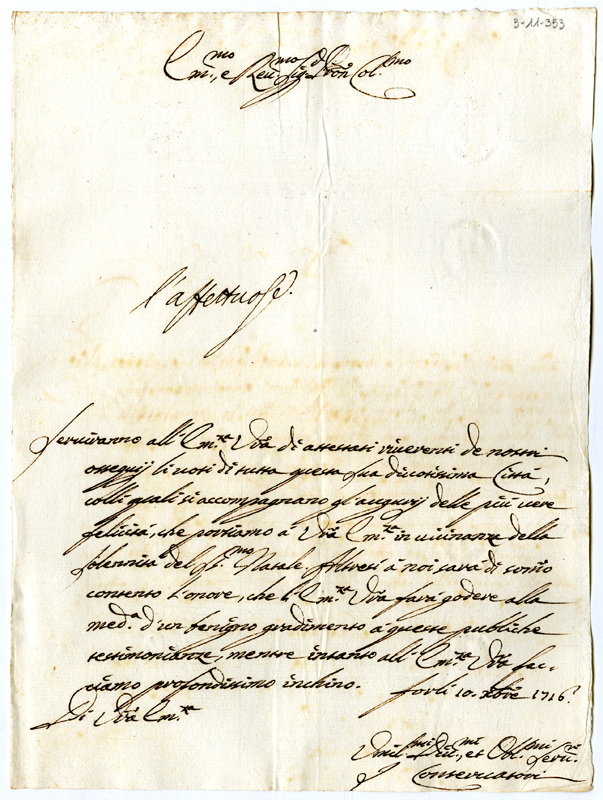 3-11-353
Em.mo, e Reu.mo Sig. Pron Col.mo
l'affettuose.
Seruiranno all'Em.za Vra di attestati riuerenti de nostri
ossequij li uoti di tutta questa sua diuotissima Città,
colli quali si accompagnano gl'augurij delle più uere
felicità, che portiamo à Vra Em.za in uicinanza della
solennità del S.mo Natale. Altresi à noi sarà di som̃o
contento l'onore, che l'Em.za Vra farà godere alla
med.a d'un benigno gradimento à queste publiche
testimonianze, mentre intanto all'Em.za Vra fac-
ciamo profondissimo inchino. forlì 10. Xbre 1716.
Di Vra Em.za
Vmil.mi Diu.mi, et Obl.mi Seru.ri
Conseruatori